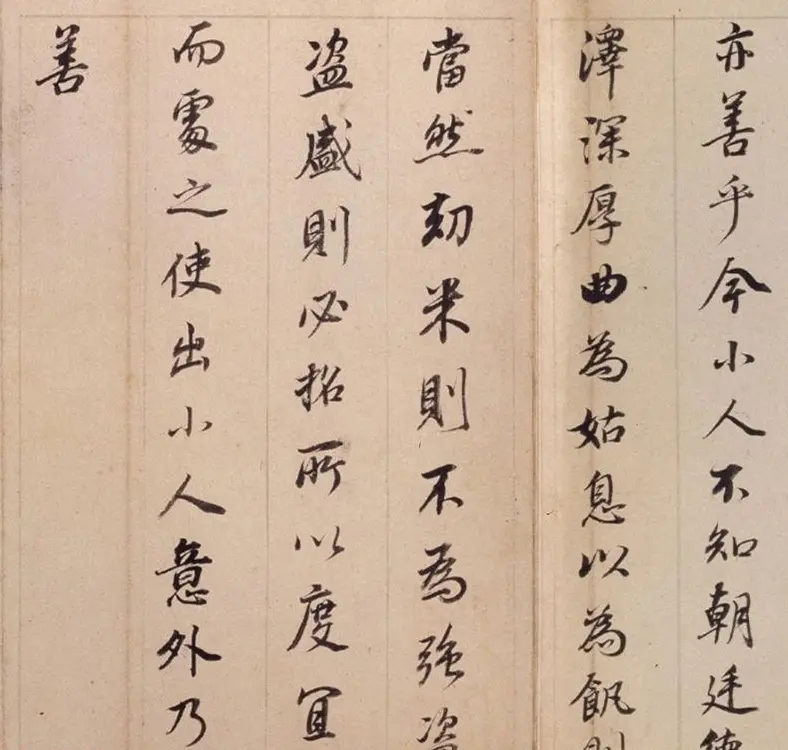 亦善乎今小人不知朝廷德
澤深厚曲為姑息以為飢則
當然劾米則不為強盗
盗盛則必招所以度宜
而處之使出小人意外乃
善